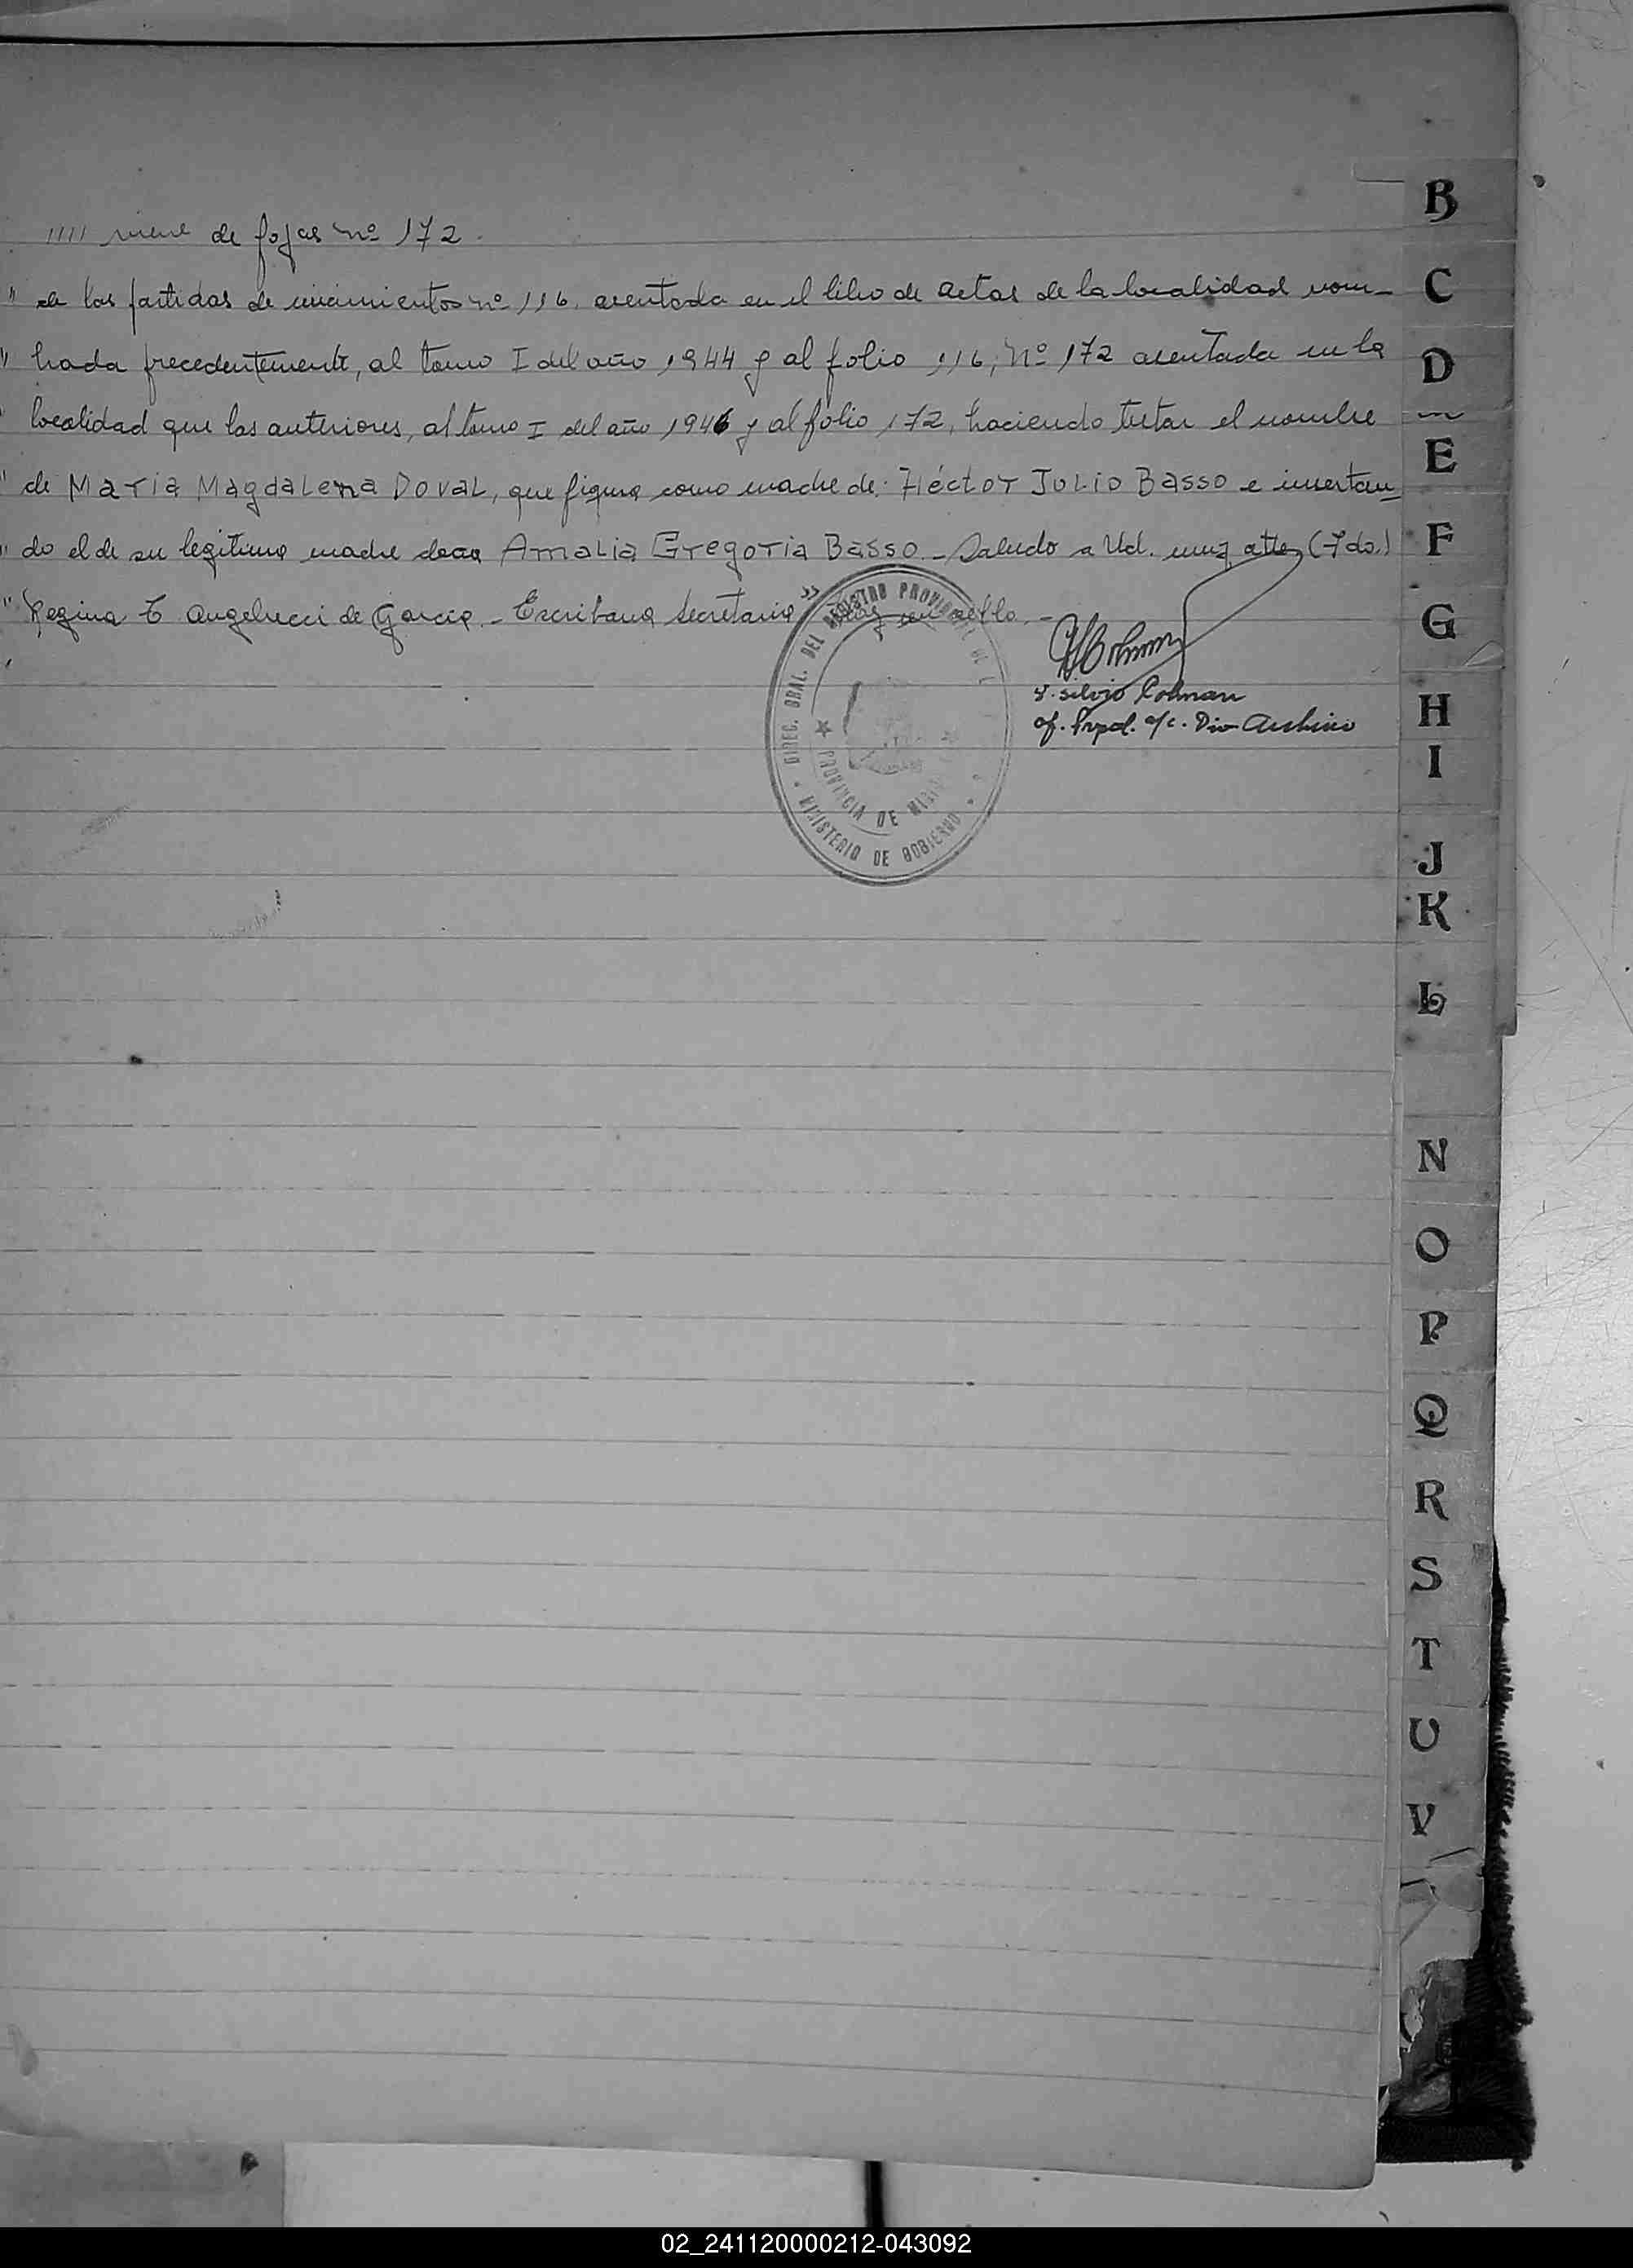 //// viene de fojas nº 172.
" de las partidas de nacimientos nº 116. asentada en el libro de actas de la localidad nom-
" brada precedentemente, al tomo I del año 1944 y al folio 116; Nº 172 asentada en la
" localidad que las anteriores, al tomo I del año 1946 y al folio 172, haciendo tutar el nombre
" de Maria Magdalena Doval, que figura como madre de: Héctor Julio Basso e insertan-
" do el de su legitima madre doña Amalia Gregoria Basso. - Saludo a Ud. muy atte, (Fdo.)
" Regina T Angelucci de Garcia. - Escribana Secretaria" Hay un sello. -
S. Silvio Colman
of. Prpal. a/c. Div Archivo
DIREC. GRAL. DEL REGISTRO PROVINCIAL DE L
PROVINCIA DE MISI
MINISTERIO DE GOBIERNO
B
C
D
E
F
G
H
I
J
K
L
N
O
P
Q
R
S
T
U
V
02_241120000212-043092